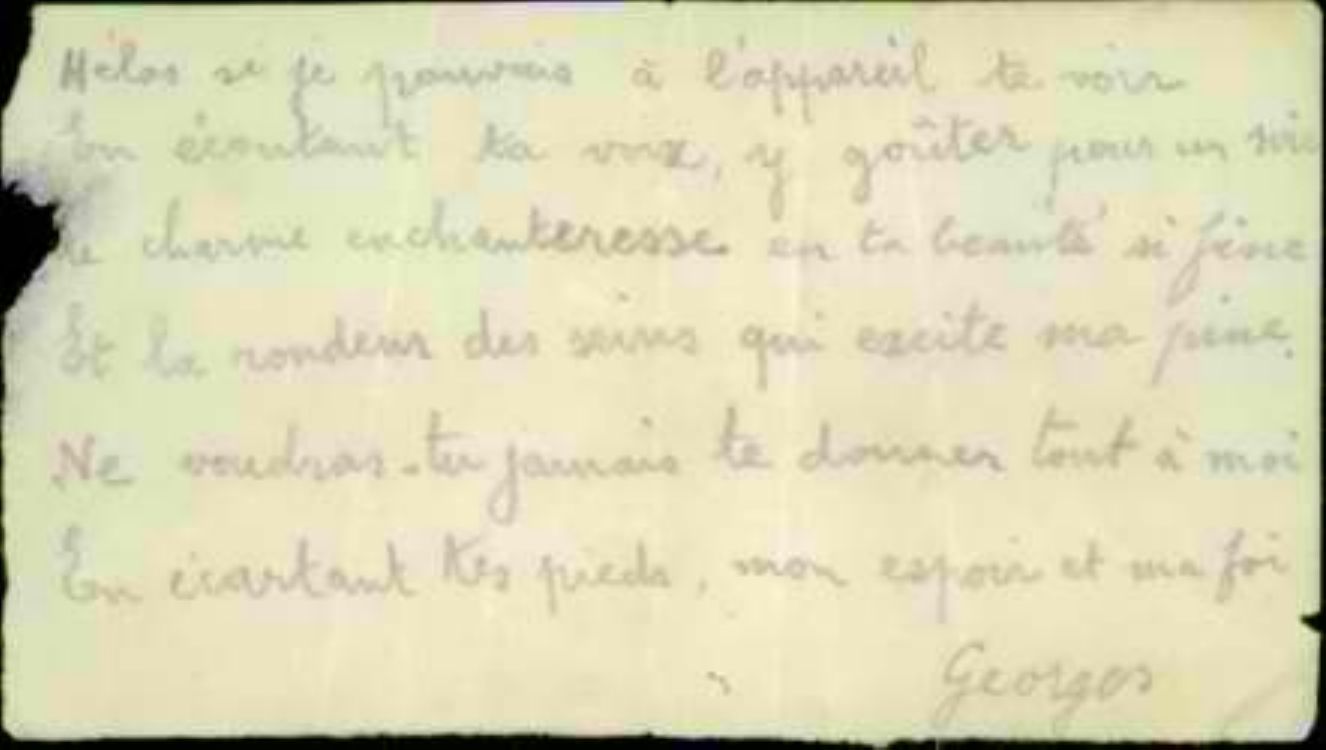 Hélas si je pouvais à l'appareil te voir
En écoutant ta voix, y goûter pour un soir
Le charme enchanteresse en ta beauté si fine
Et la rondeur des seins qui excite ma pine.
Ne voudras-tu jamais te donner tout à moi
En écartant tes pieds, mon espoir et ma foi
Georges